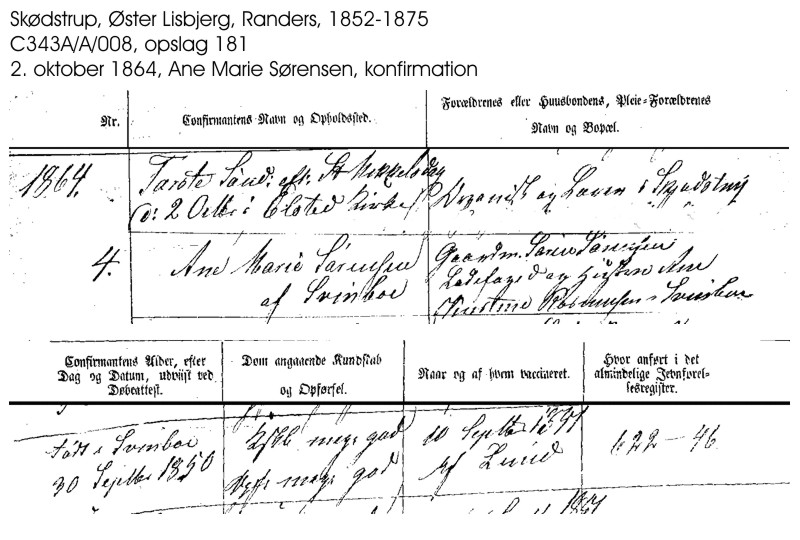 Skødstrup, Øster Lisbjerg, Randers, 1852-1875
C343A/A/008, opslag 181
2. oktober 1864, Ane Marie Sørensen, konfirmation
Nr.
Confirmantens Navn og Opholdssted.
Forældrenes eller Huusbondens, Pleie-Forældrenes
Navn og Bopæl.
1864.
Første Sønd: eft: St Mikkelsdag
(d: 2 Octbr i Elsted Kirke)
4.
Ane Marie Sørensen
af Svinboe
Gaardm. Søren Sørensen
og Hustru Ane
Rasmussen i Svinboe
Confirmantens Alder, efter
Dag og Datum, udviist ved
Døbeattest.
Dom angaaende Kundskab
og Opførsel.
Naar og af hvem vaccineret.
Hvor anført i det
almindelige Jevnførel-
sesregister.
født i Svinboe
30 Septbr 1850
Kskb meget god
Opf: meget god
10 Septbr
af Lund
622-46